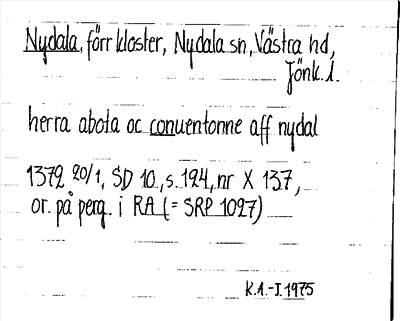 Nydala, förr kloster, Nydala sn, Västra hd,
Jönk. l.
herra abota oc conuentonne aff nydal
1372 20/1, SD 10, s. 124, nr X 137,
or. på perg. i RA (= SRP 1027)
K.A.-J. 1975